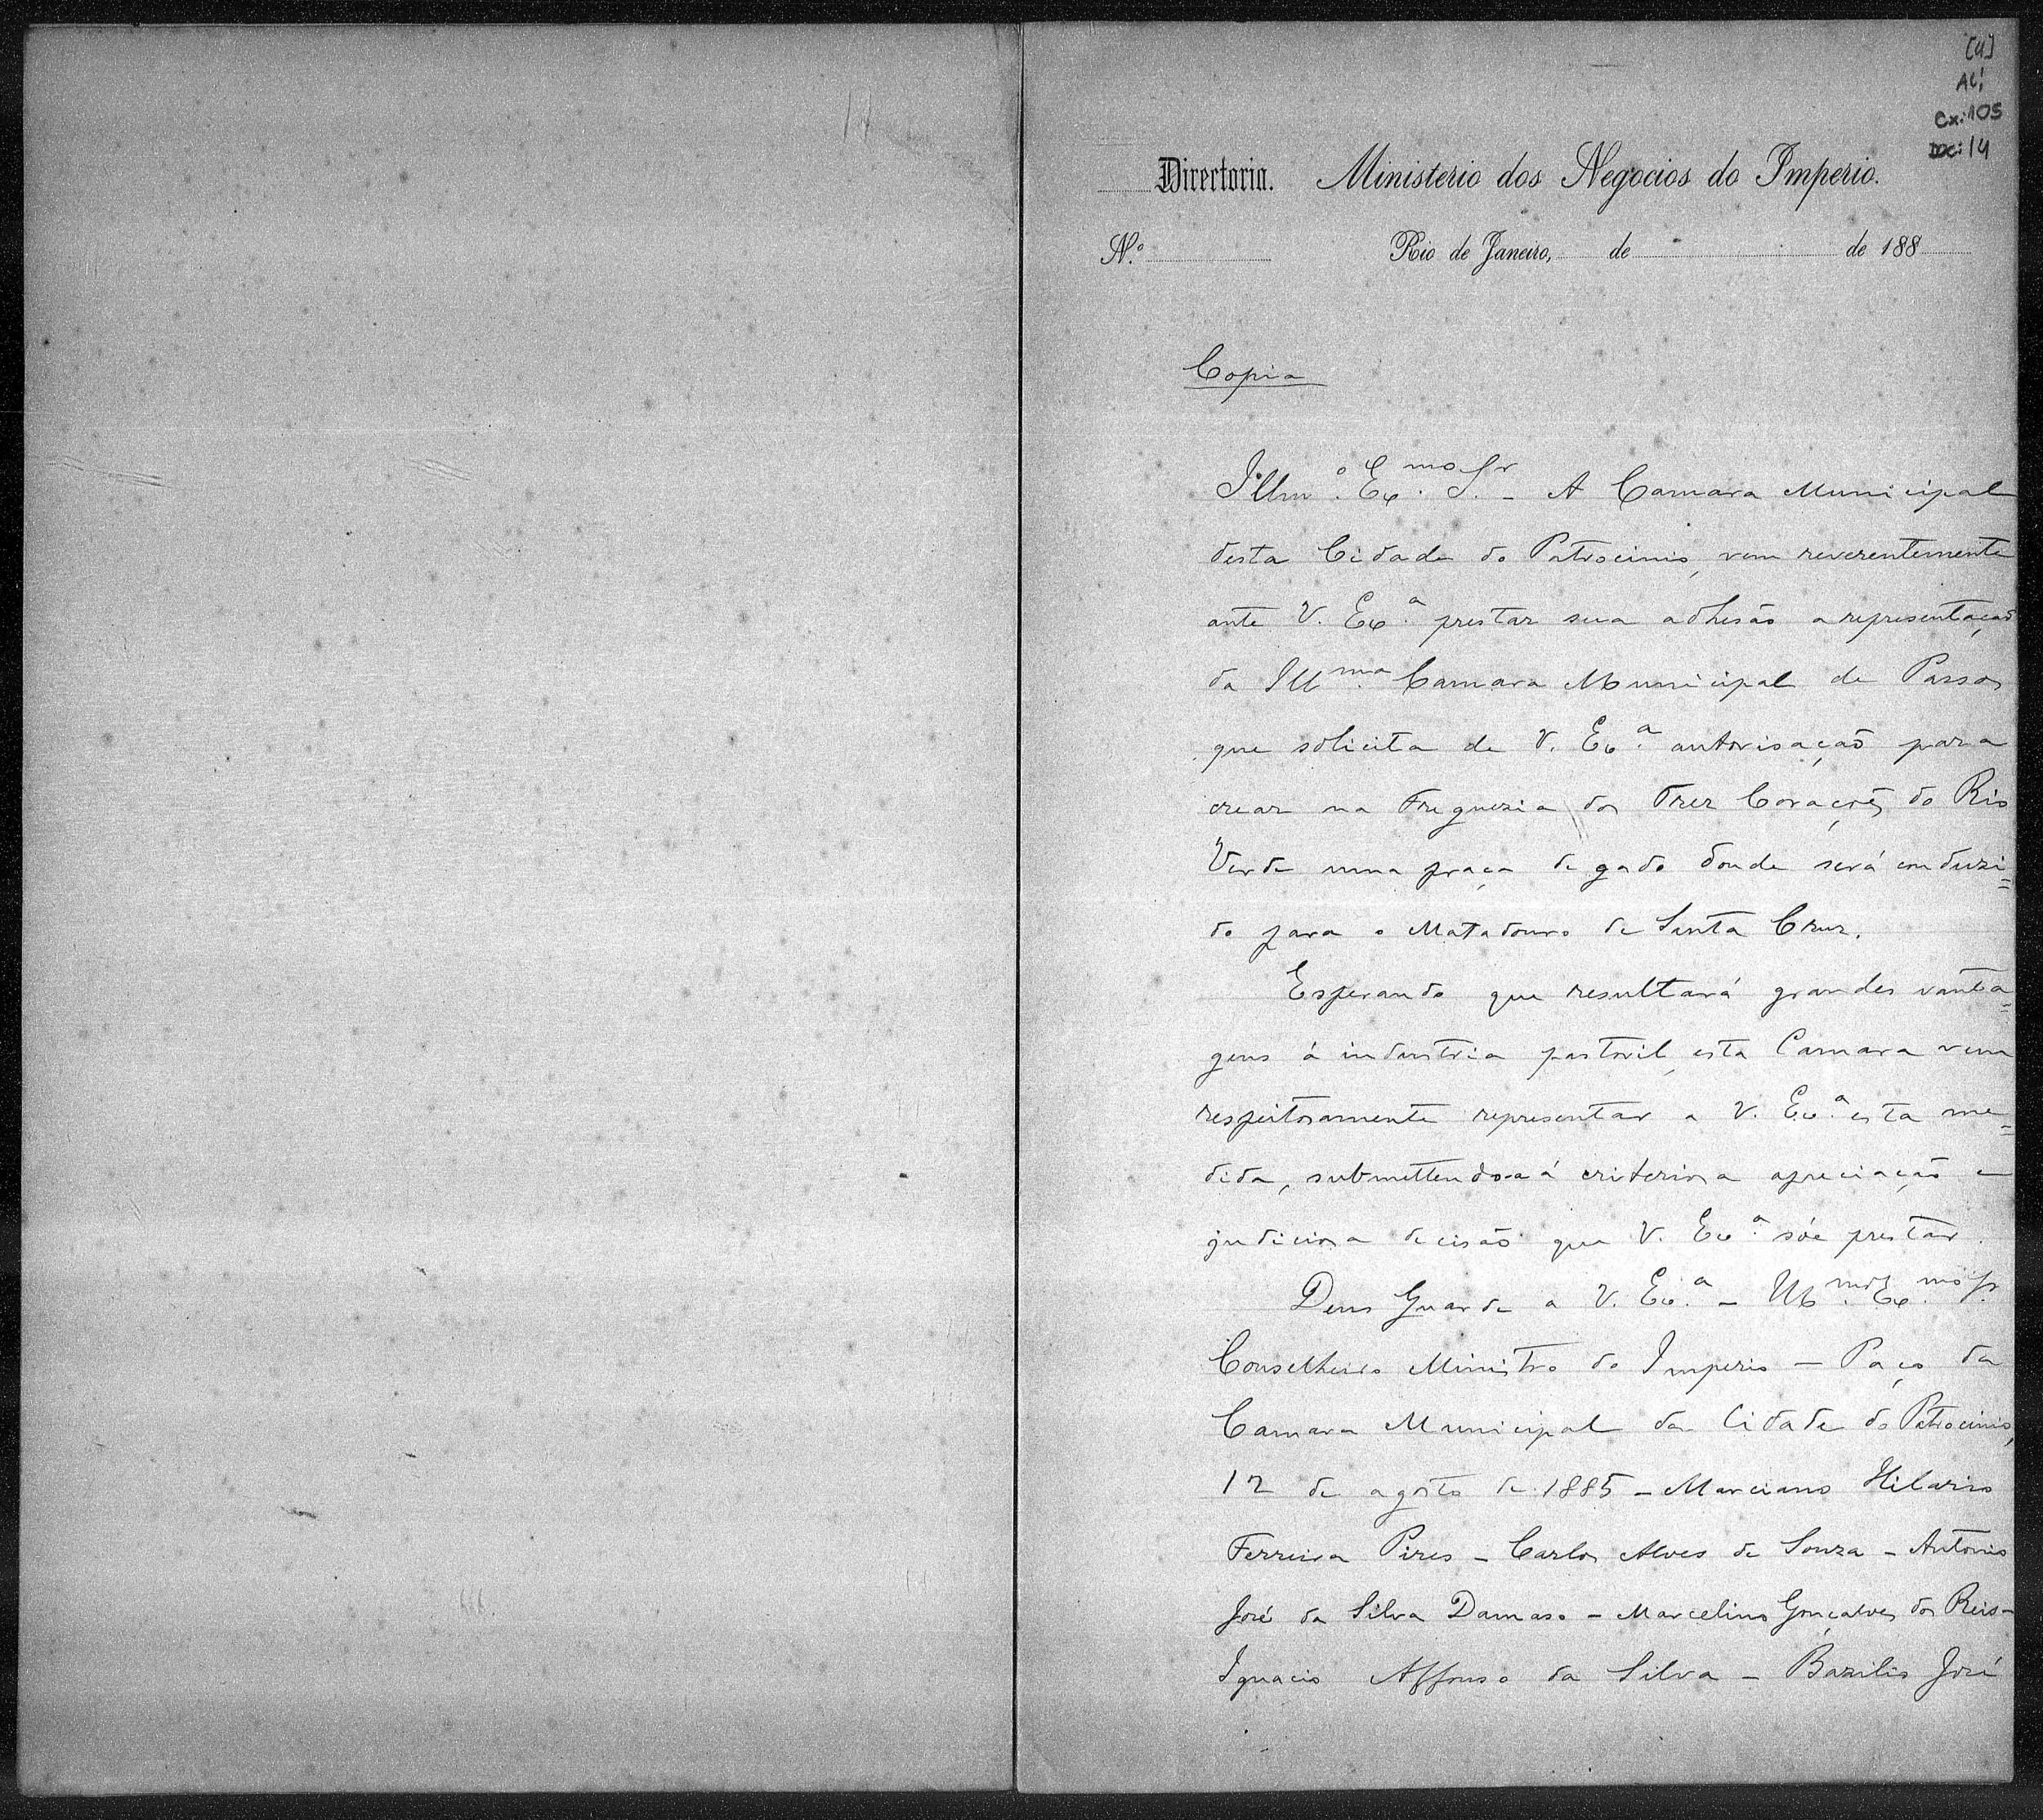 [4]
AC!
Cx: 105
Doc: 14
Directoria. Ministerio dos Negocios do Imperio.
N.º Rio de Janeiro, de de 188
Copia
Illmº. Exmo. Sr. - A Camara Municipal
desta Cidade do Patrocinio, vem reverentemente
ante V. Exª. prestar sua adhesão a representação
da Illma. Camara Municipal de Passos
que solicita de V. Exª. autorisação para
crear na Freguezia dos Trez Corações do Rio
Verde uma praça de gado donde será conduzi=
do para o Matadouro de Santa Cruz.
Esperando que resultará grandes vanta=
gens á industria pastoril, esta Camara vem
respeitosamente representar a V. Exª. esta me=
dida, submettendo-a á criteriosa apreciação e
judiciosa decisão que V. Exª. sóe prestar.
Deus Guarde a V. Exª. - Illmo. Exmo. Sr.
Conselheiro Ministro do Imperio - Paço da
Camara Municipal da Cidade do Patrocinio,
12 de agosto de 1885 - Marciano Hilario
Ferreira Pires - Carlos Alves de Souza - Antonio
José da Silva Damaso - Marcelino Gonçalves dos Reis -
Ignacio Affonso da Silva - Bazilio José